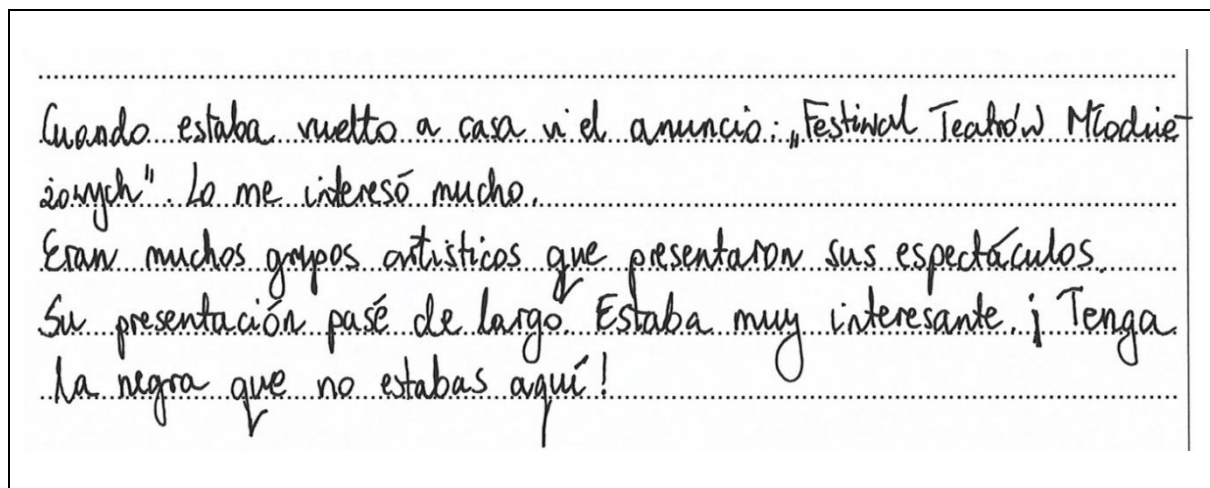 Cuando estaba vuelto a casa vi el anuncio: „Festiwal Teatrów Młodzie-
żowych". Lo me interesó mucho.
Eran muchos grupos artísticos que presentaron sus espectáculos.
Su presentación pasé de largo. Estaba muy interesante. ¡Tenga
la negra que no estabas aquí!